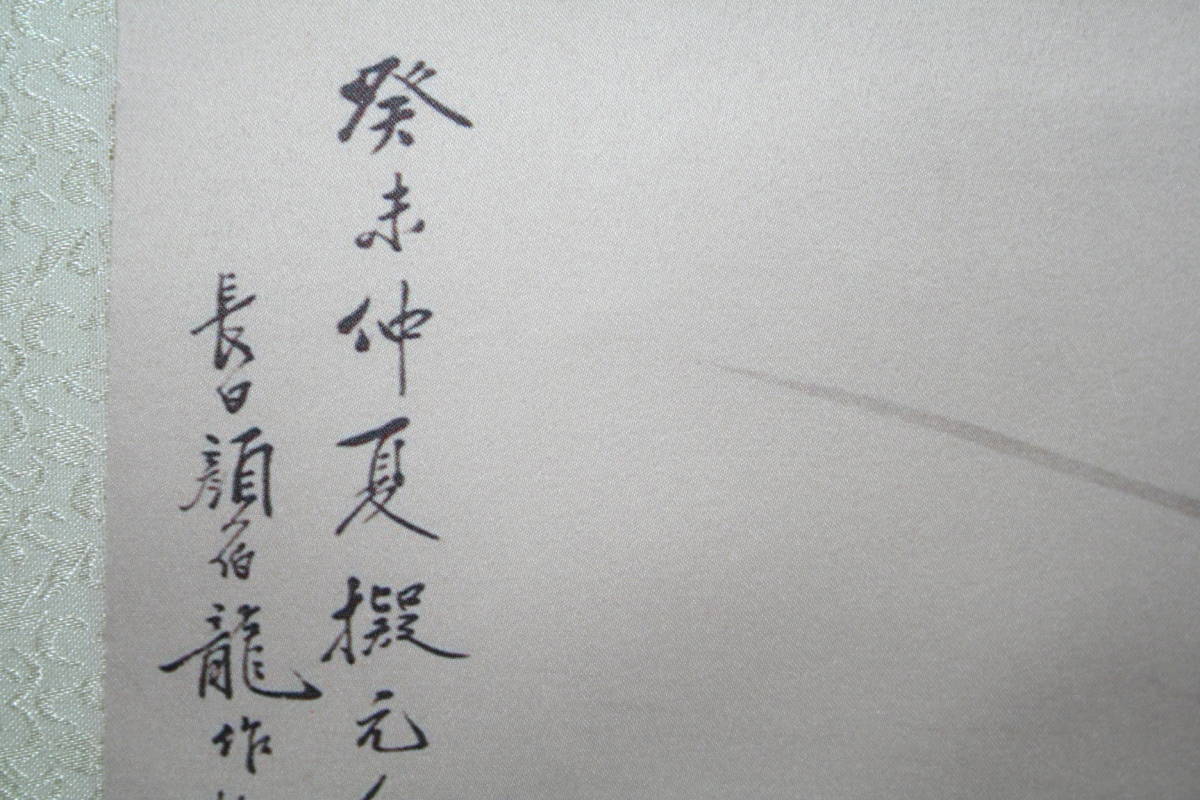 癸未仲夏撰元
長日顏伯龍作